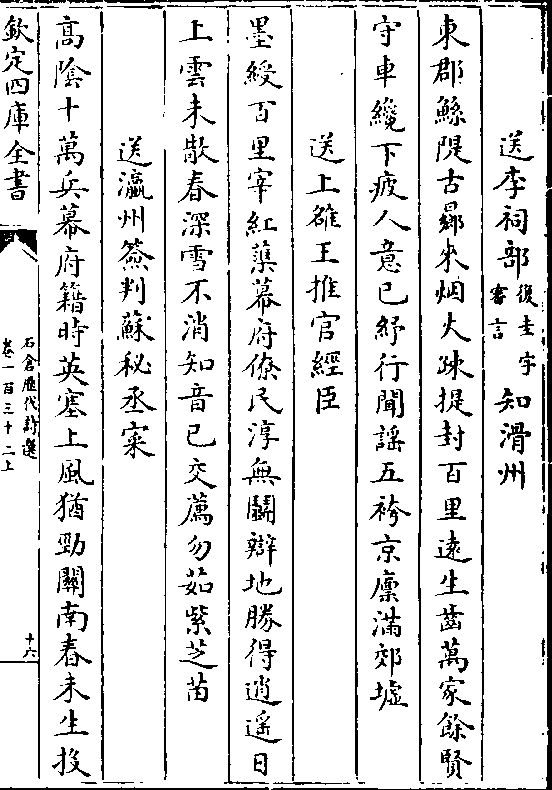 送李祠部後圭字審言知滑州
東郡鯀隄古㝷來烟火疎提封百里遠生齒萬家餘賢
守車纔下疲人意已紓行聞謡五袴京廪滿郊墟
送上雒王推官經臣
墨綬百里宰紅蕖幕府僚民淳無鬭辯地勝得逍遥日
上雲未散春深雪不消知音已交薦勿茹紫芝苗
送瀛州簽判蘇秘丞寀
高陰十萬兵幕府籍時英塞上風猶勁關南春未生投
欽定四庫全書
石倉歷代詩選
卷一百三十二上
十六